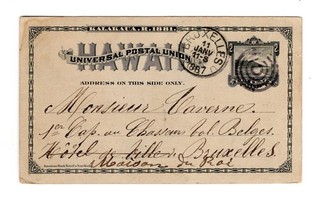 KALAKAUA. R. 1881.
HAWAII
UNIVERSAL POSTAL UNION.
BRUXELLES
11
JANV
1887
2
ADDRESS ON THIS SIDE ONLY.
Monsieur Taverne.
1er Cap. au Chasseurs Vol. Belges.
Hôtel de Ville Bruxelles
Maison du Roi